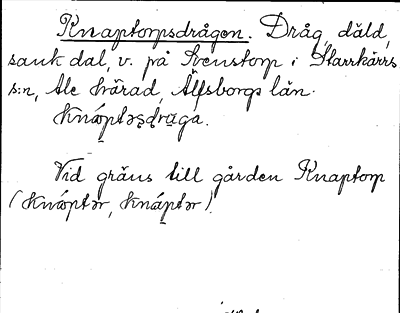 Knaptorpsdrågen. Dråg, däld,
sank dal, v. på Svenstorp i Starrkärrs
s:n, Ale härad, Älfsborgs län.
Knáptəs̡d̡raga.
Vid gräns till gården Knaptorp
(Knáptər, Knáptər).